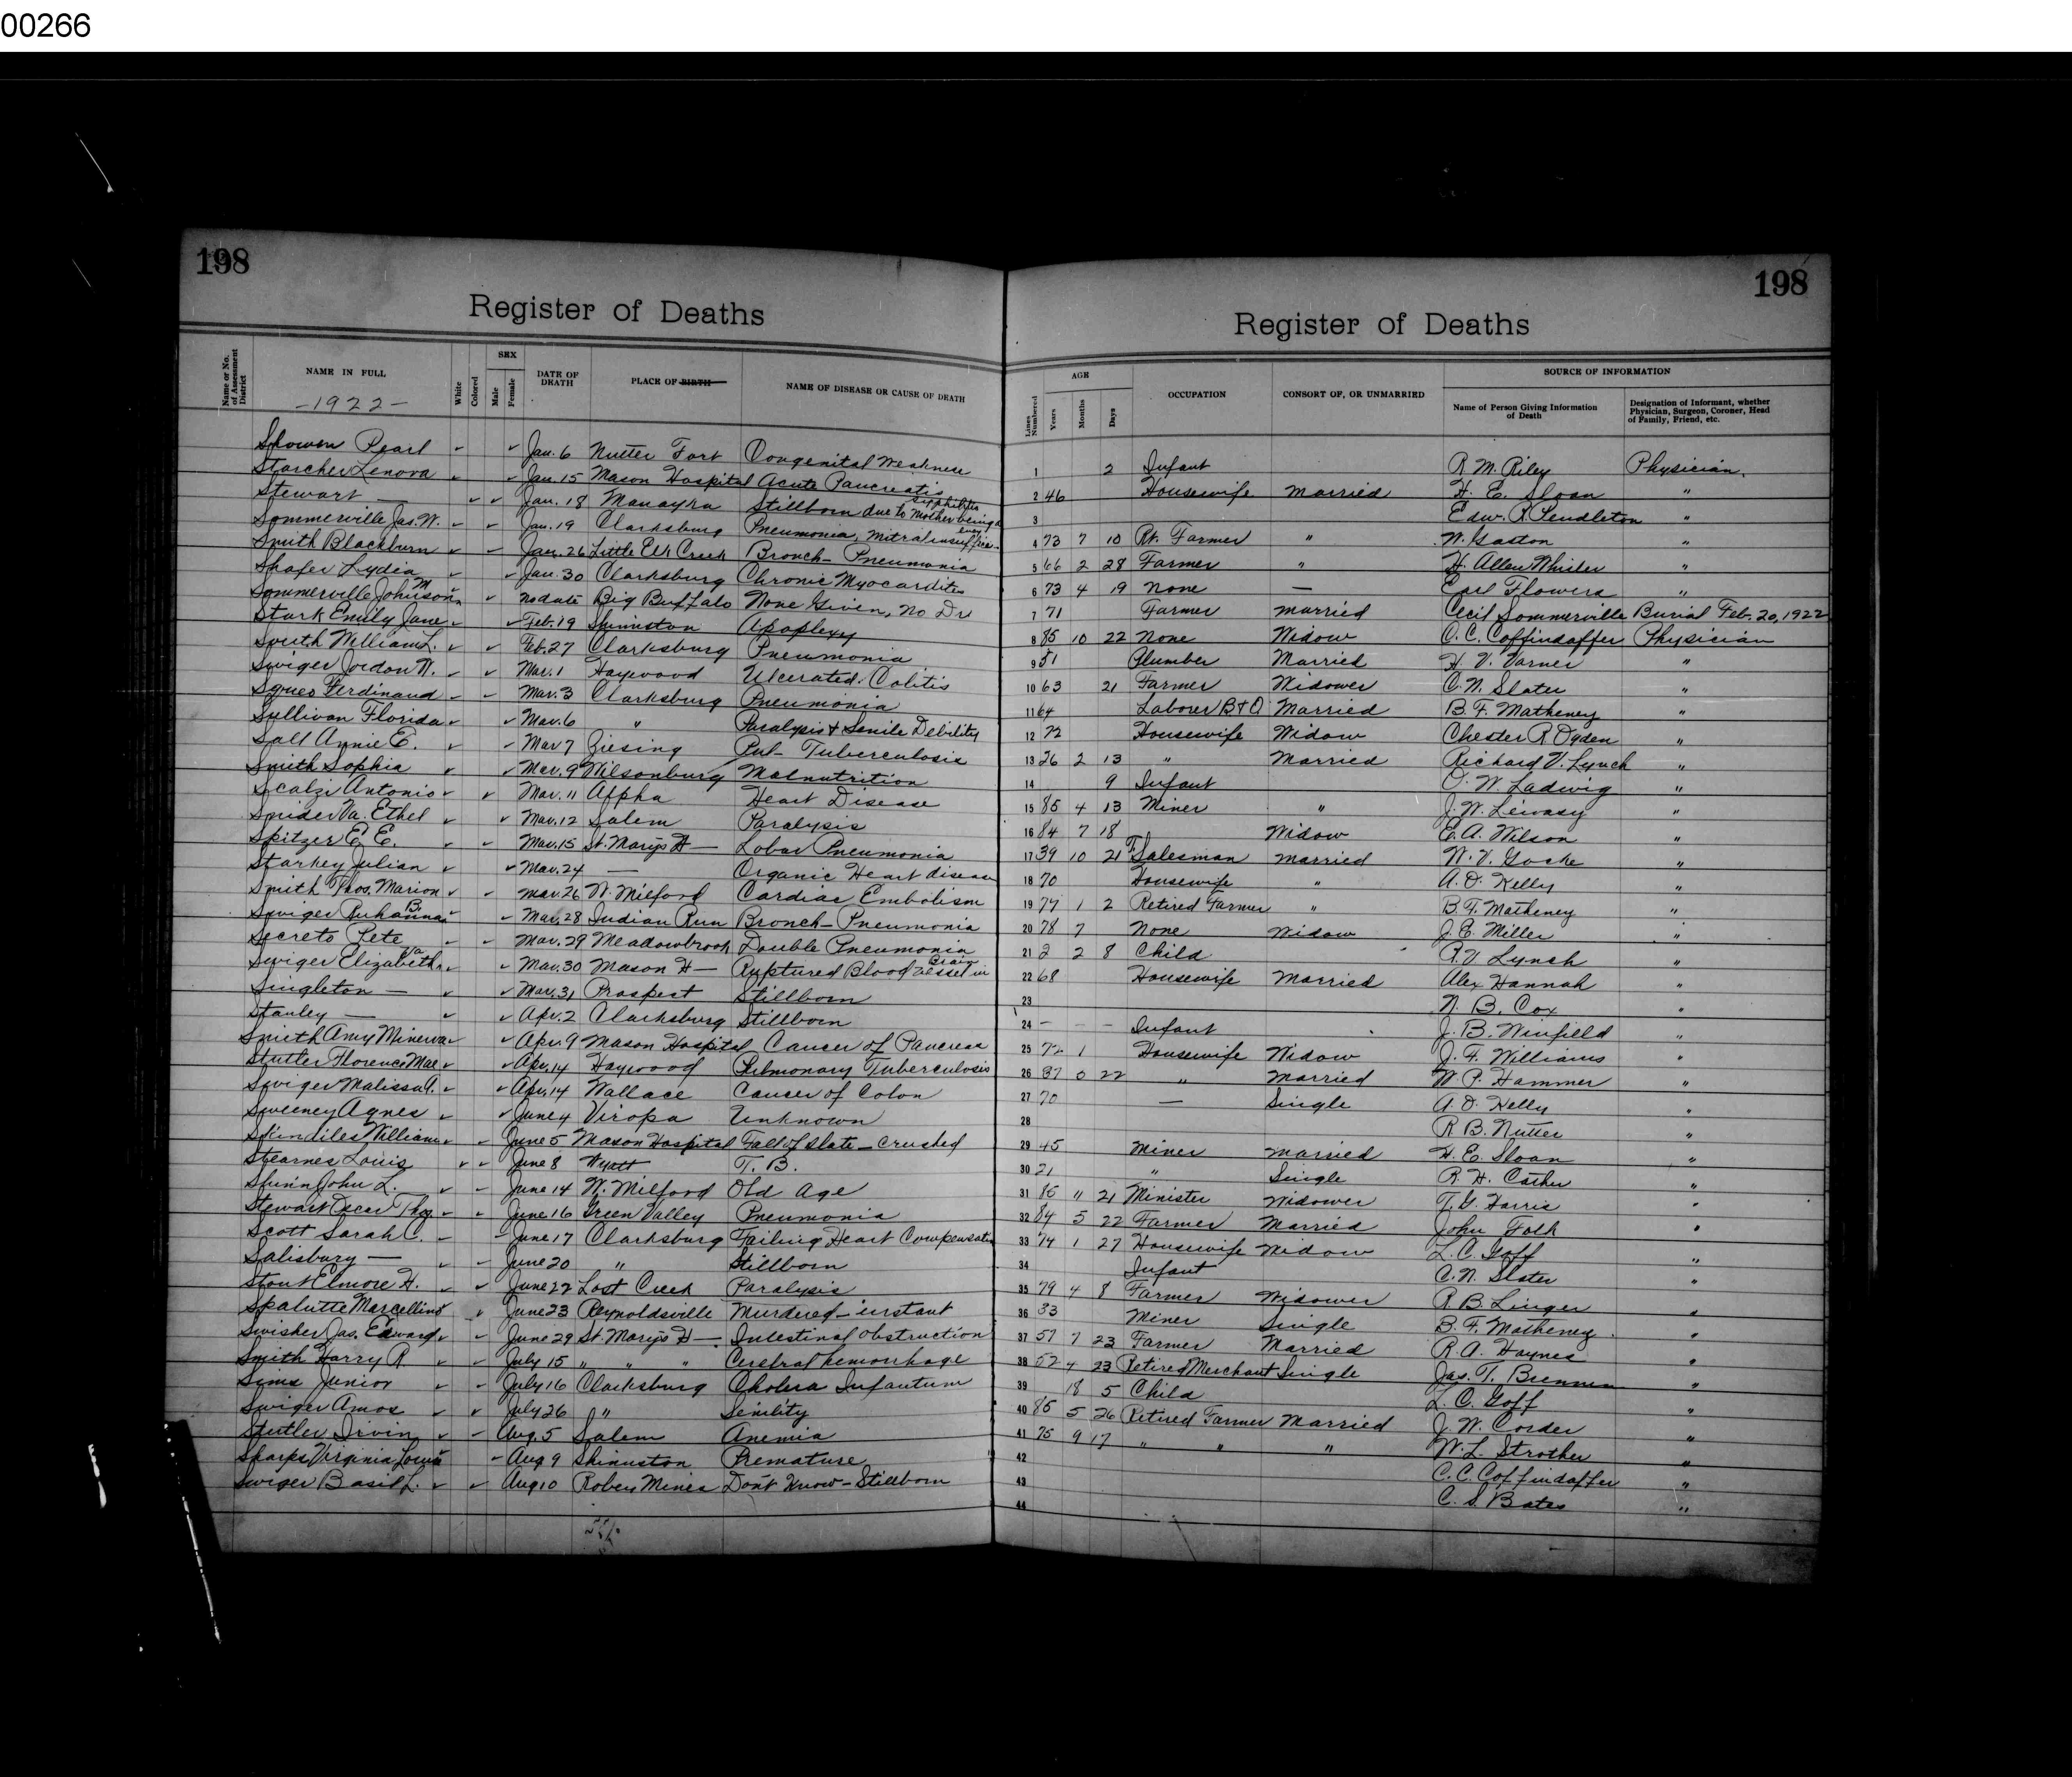 00266
198
198
Register of Deaths
Register of Deaths
Name or No. of Assessment District
NAME IN FULL
-1922-
White
Colored
SEX
Male
Female
DATE OF DEATH
PLACE OF BIRTH
NAME OF DISEASE OR CAUSE OF DEATH
Lines Numbered
AGE
Years
Months
Days
OCCUPATION
CONSORT OF, OR UNMARRIED
SOURCE OF INFORMATION
Name of Person Giving Information of Death
Designation of Informant, whether Physician, Surgeon, Coroner, Head of Family, Friend, etc.
Showen Pearl ✓ ✓ Jan. 6 Nutter Fort Congenital Weakness 1 2 Infant R. M. Riley Physician.
Starcher Lenora ✓ ✓ Jan. 15 Mason Hospital Acute Pancreatis 2 46 Housewife Married H. E. Sloan "
Stewart — ✓ ✓ Jan. 18 Stillborn due to Mother being syphilitic 3 Edw. R. Pendleton "
Sommerville Jas. W. ✓ ✓ Jan. 19 Clarksburg Pneumonia, Mitral insufficiency 4 73 7 10 Rt. Farmer " W. Gaston "
Smith Blackburn ✓ ✓ Jan. 26 Little Elk Creek Bronch- Pneumonia 5 66 2 28 Farmer " H. Allen Whisler "
Shafer Lydia ✓ ✓ Jan. 30 Clarksburg Chronic Myocarditis 6 73 4 19 None — Earl Flowers "
Sommerville Johnson M. ✓ ✓ no date Big Buffalo None Given, No Dr 7 71 Farmer Married Cecil Sommerville Burial Feb. 20, 1922
Stark Emily Jane ✓ ✓ Feb. 19 Shinnston Apoplexy 8 85 10 22 None Widow C. C. Coffindaffer Physician
Smith William L. ✓ ✓ Feb. 27 Clarksburg Pneumonia 9 51 Plumber Married H. V. Varner "
Swiger Jordon N. ✓ ✓ Mar. 1 Haywood Ulcerated Colitis 10 63 21 Farmer Widower C. N. Slater "
Ferdinand ✓ ✓ Mar. 3 Clarksburg Pneumonia 11 64 Laborer B+O Married B. F. Matheney "
Sullivan Florida ✓ ✓ Mar. 6 " Paralysis + Senile Debility 12 72 Housewife Widow Chester R Ogden "
Sall Annie E. ✓ ✓ Mar 7 Ziesing Pul- Tuberculosis 13 26 2 13 " Married Richard V. Lynch "
Smith Sophia ✓ ✓ Mar. 9 Wilsonburg Malnutrition 14 9 Infant O. W. Ladwig "
Scalzi Antonio ✓ ✓ Mar. 11 Alpha Heart Disease 15 85 4 13 Miner " J. W. "
Snider Va. Ethel ✓ ✓ Mar. 12 Salem Paralysis 16 84 7 18 Widow E. A. Wilson "
Spitzer E. E. ✓ ✓ Mar. 15 St. Marys H— Lobar Pneumonia 17 39 10 21 Salesman Married W. V. Gocke "
Starkey Julian ✓ ✓ Mar. 24 — Organic Heart disease 18 70 Housewife " A. O. Kelly "
Smith Thos. Marion ✓ ✓ Mar. 26 W. Milford Cardiac Embolism 19 77 1 2 Retired Farmer " B. F. Matheney "
Swiger Ruhanna B. ✓ ✓ Mar. 28 Indian Run Bronch-Pneumonia 20 78 7 None Widow J. E. Miller "
Secreto Pete ✓ ✓ Mar. 29 Meadowbrook Double Pneumonia 21 2 2 8 Child R. V. Lynch "
Swiger Elizabeth Va ✓ ✓ Mar. 30 Mason H— Ruptured Blood Vessel in Brain 22 68 Housewife Married Alex Hannah "
Singleton — ✓ ✓ Mar. 31 Prospect Stillborn 23 N. B. Cox "
Stanley — ✓ ✓ Apr. 2 Clarksburg Stillborn 24 — — — Infant J. B. Winfield "
Smith Amy Minerva ✓ ✓ Apr. 9 Mason Hospital Cancer of Pancreas 25 72 1 Housewife Widow J. F. Williams "
Stutler Florence Mae ✓ ✓ Apr. 14 Haywood Pulmonary Tuberculosis 26 37 0 22 " Married W. P. Hammer "
Swiger Malissa A. ✓ ✓ Apr. 14 Wallace Cancer of Colon 27 70 — Single A. O. Kelly "
Sweeney Agnes ✓ ✓ June 4 Viropa Unknown 28 R. B. Nutter "
Skindiles William ✓ ✓ June 5 Mason Hospital Fall of Slate — crushed 29 45 Miner Married H. E. Sloan "
Stearnes Louis ✓ ✓ June 8 Wyatt T. B. 30 21 " Single R. H. Cather "
John L. ✓ ✓ June 14 W. Milford Old Age 31 85 11 21 Minister Widower T. G. Harris "
Stewart Oscar Thos. ✓ ✓ June 16 Green Valley Pneumonia 32 84 5 22 Farmer Married John Folk "
Scott Sarah C. ✓ ✓ June 17 Clarksburg Failing Heart Compensation 33 74 1 27 Housewife Widow L. C. Goff "
Salisbury — ✓ ✓ June 20 " Stillborn 34 Infant C. N. Slater "
Stout Elmore H. ✓ ✓ June 22 Lost Creek Paralysis 35 79 4 8 Farmer Widower R. B. Linger "
Spalutte Marcellino ✓ ✓ June 23 Reynoldsville Murdered — instant 36 33 Miner Single B. F. Matheney "
Swisher Jas. Edward ✓ ✓ June 29 St. Marys H— Intestinal Obstruction 37 57 7 23 Farmer Married R. A. Haynes "
Smith Harry R ✓ ✓ July 15 " " " Cerebral hemorrhage 38 52 4 23 Retired Merchant Single Jas. T. Brennen "
Sims Junior ✓ ✓ July 16 Clarksburg Cholera Infantum 39 18 5 Child L. C. Goff "
Swiger Amos ✓ ✓ July 26 " Senility 40 85 5 26 Retired Farmer Married J. W. Corder "
Stutler Irvin ✓ ✓ Aug. 5 Salem Anemia 41 75 9 17 " " " W. L. Strother "
Sharps Virginia Louis ✓ Aug 9 Shinnston Premature 42 C. C. Coffindaffer "
Swiger Basil L. ✓ ✓ Aug 10 Robey Mines Dont Know — Stillborn 43 C. S. Bates "
44